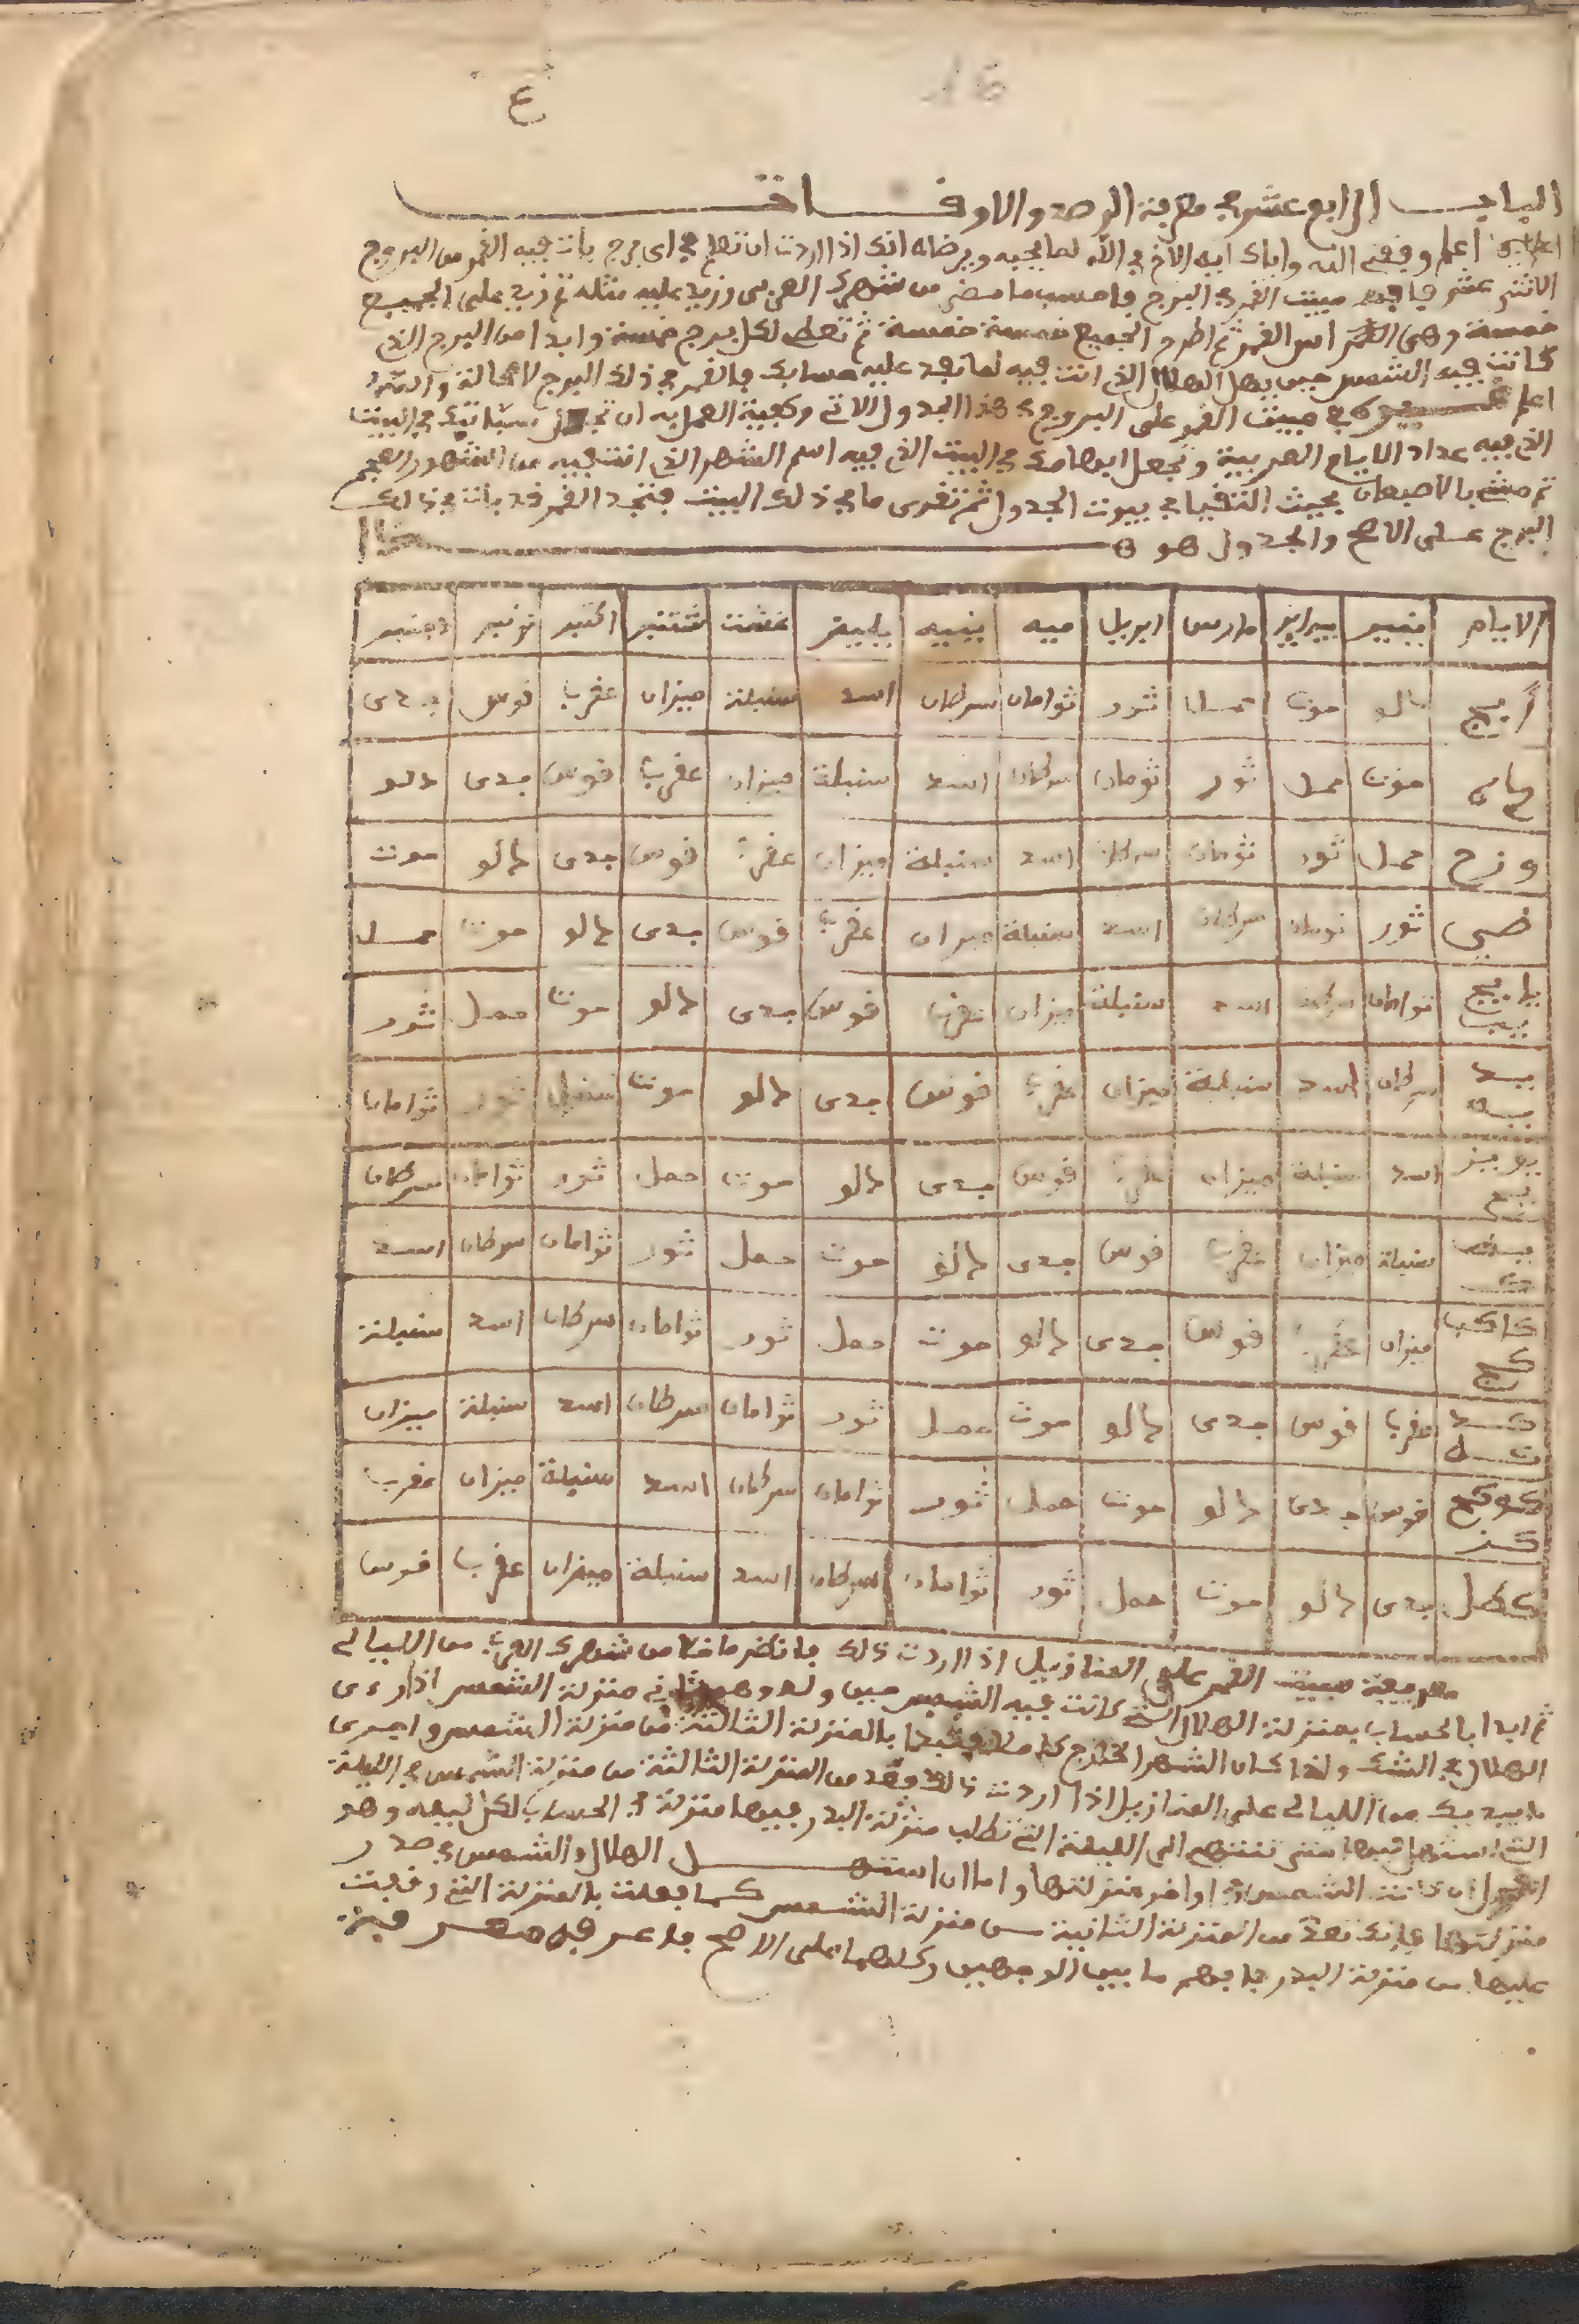 ع
16
الباب الرابع عشر في معرفة الرصد والاوقات
اعلم وفقني الله واياك ايها الاخ في الله لما يحبه ويرضاه انك اذا اردت ان تعلم في اي برج بات فيه القمر من البروج
الاثني عشر مبيت القمر في البرج فاحسب ما مضى من شهرك العربي وزيد عليه مثله ثم زيد على الجميع
خمسة وهي اس القمر ثم اطرح الجميع خمسة خمسة ثم تعطي لكل برج خمسة وابدا من البرج الذي
كانت فيه الشمس حين يهل الهلال الذي انت فيه فما نفد عليه حسابك فالقمر في ذلك البرج لا محالة والله
اعلم مبيت القمر على البروج في هذا الجدول الاتي وكيفية العمل به ان تجعل سبابتك في البيت
الذي فيه عداد الايام العربية وتجعل ابهامك في البيت الذي فيه اسم الشهر الذي انت فيه من الشهور العجم
ثم مش بالاصبعان بحيث التقيا في بيوت الجدول ثم تقرى ما في ذلك البيت فتجد القمر قد بات في ذلك
البرج على الاصح والجدول هو هذا
الايام ينير يبراير مارس ابريل ميه ينيه يليز غشت شتنبر اكتبر نونبر دجنبر
ا ب ج دالو حوت حمل ثور توامان سرطان اسد سنبلة ميزان عقرب قوس جدى
حوت حمل ثور تومان سرطان اسد سنبلة ميزان عقرب قوس جدى دلو
و ز ح حمل ثور تومان سرطان اسد سنبلة ميزان عقرب قوس جدى دالو حوت
ثور تومان سرطان اسد سنبلة ميزان عقرب قوس جدى دالو حوت حمل
يا يج يب توامان سرطان اسد سنبلة ميزان عقرب قوس جدى دالو حوت حمل ثور
يد يه سرطان اسد سنبلة ميزان عقرب قوس جدى دالو حوت ثور توامان
يو يز يح اسد سنبلة ميزان عقرب قوس جدى دالو حوت حمل ثور توامان سرطان
سنبلة ميزان عقرب قوس جدى دالو حوت حمل ثور توامان سرطان اسد
كا كب كج ميزان عقرب قوس جدى دالو حوت حمل ثور توامان سرطان اسد سنبلة
كد عقرب قوس جدى دالو حوت حمل ثور توامان سرطان اسد سنبلة ميزان
كو كح كز قوس جدى دالو حوت حمل ثور توامان سرطان اسد سنبلة ميزان عقرب
كط ل جدى دالو حوت حمل ثور توامان سرطان اسد سنبلة ميزان عقرب قوس
معرفة مبيت القمر على المنازيل اذا اردت ذلك فانظر ما خلا من شهرك العربي من الليالي
ثم ابدا بالحساب بمنزلة الهلال التي كانت فيه الشمس حين ولد منزلة الشمس اذا رءى
الهلال في الشك واذا كان الشهر الخارج بالمنزلة الثالثة من منزلة الشمس واجرى
ما بيديك من الليالي على المنازيل اذا اردت ذلك وعد من المنزلة الثالثة من منزلة الشمس في الليلة
التي استهل فيها حتى تنتهي الى الليلة التي تطلب منزلة البدر فيها منزلة في الحساب لكل ليلة وهو
ان كانت الشمس في اواخر منزلتها واما ان استهل الهلال والشمس في صدر
منزلتها فانك تعد من المنزلة الثانية من منزلة الشمس كما فعلت بالمنزلة التي وقعت
عليها من منزلة البدر فافهم ما بين الوجهين وكلاهما على الاصح فاعرفه معرفة